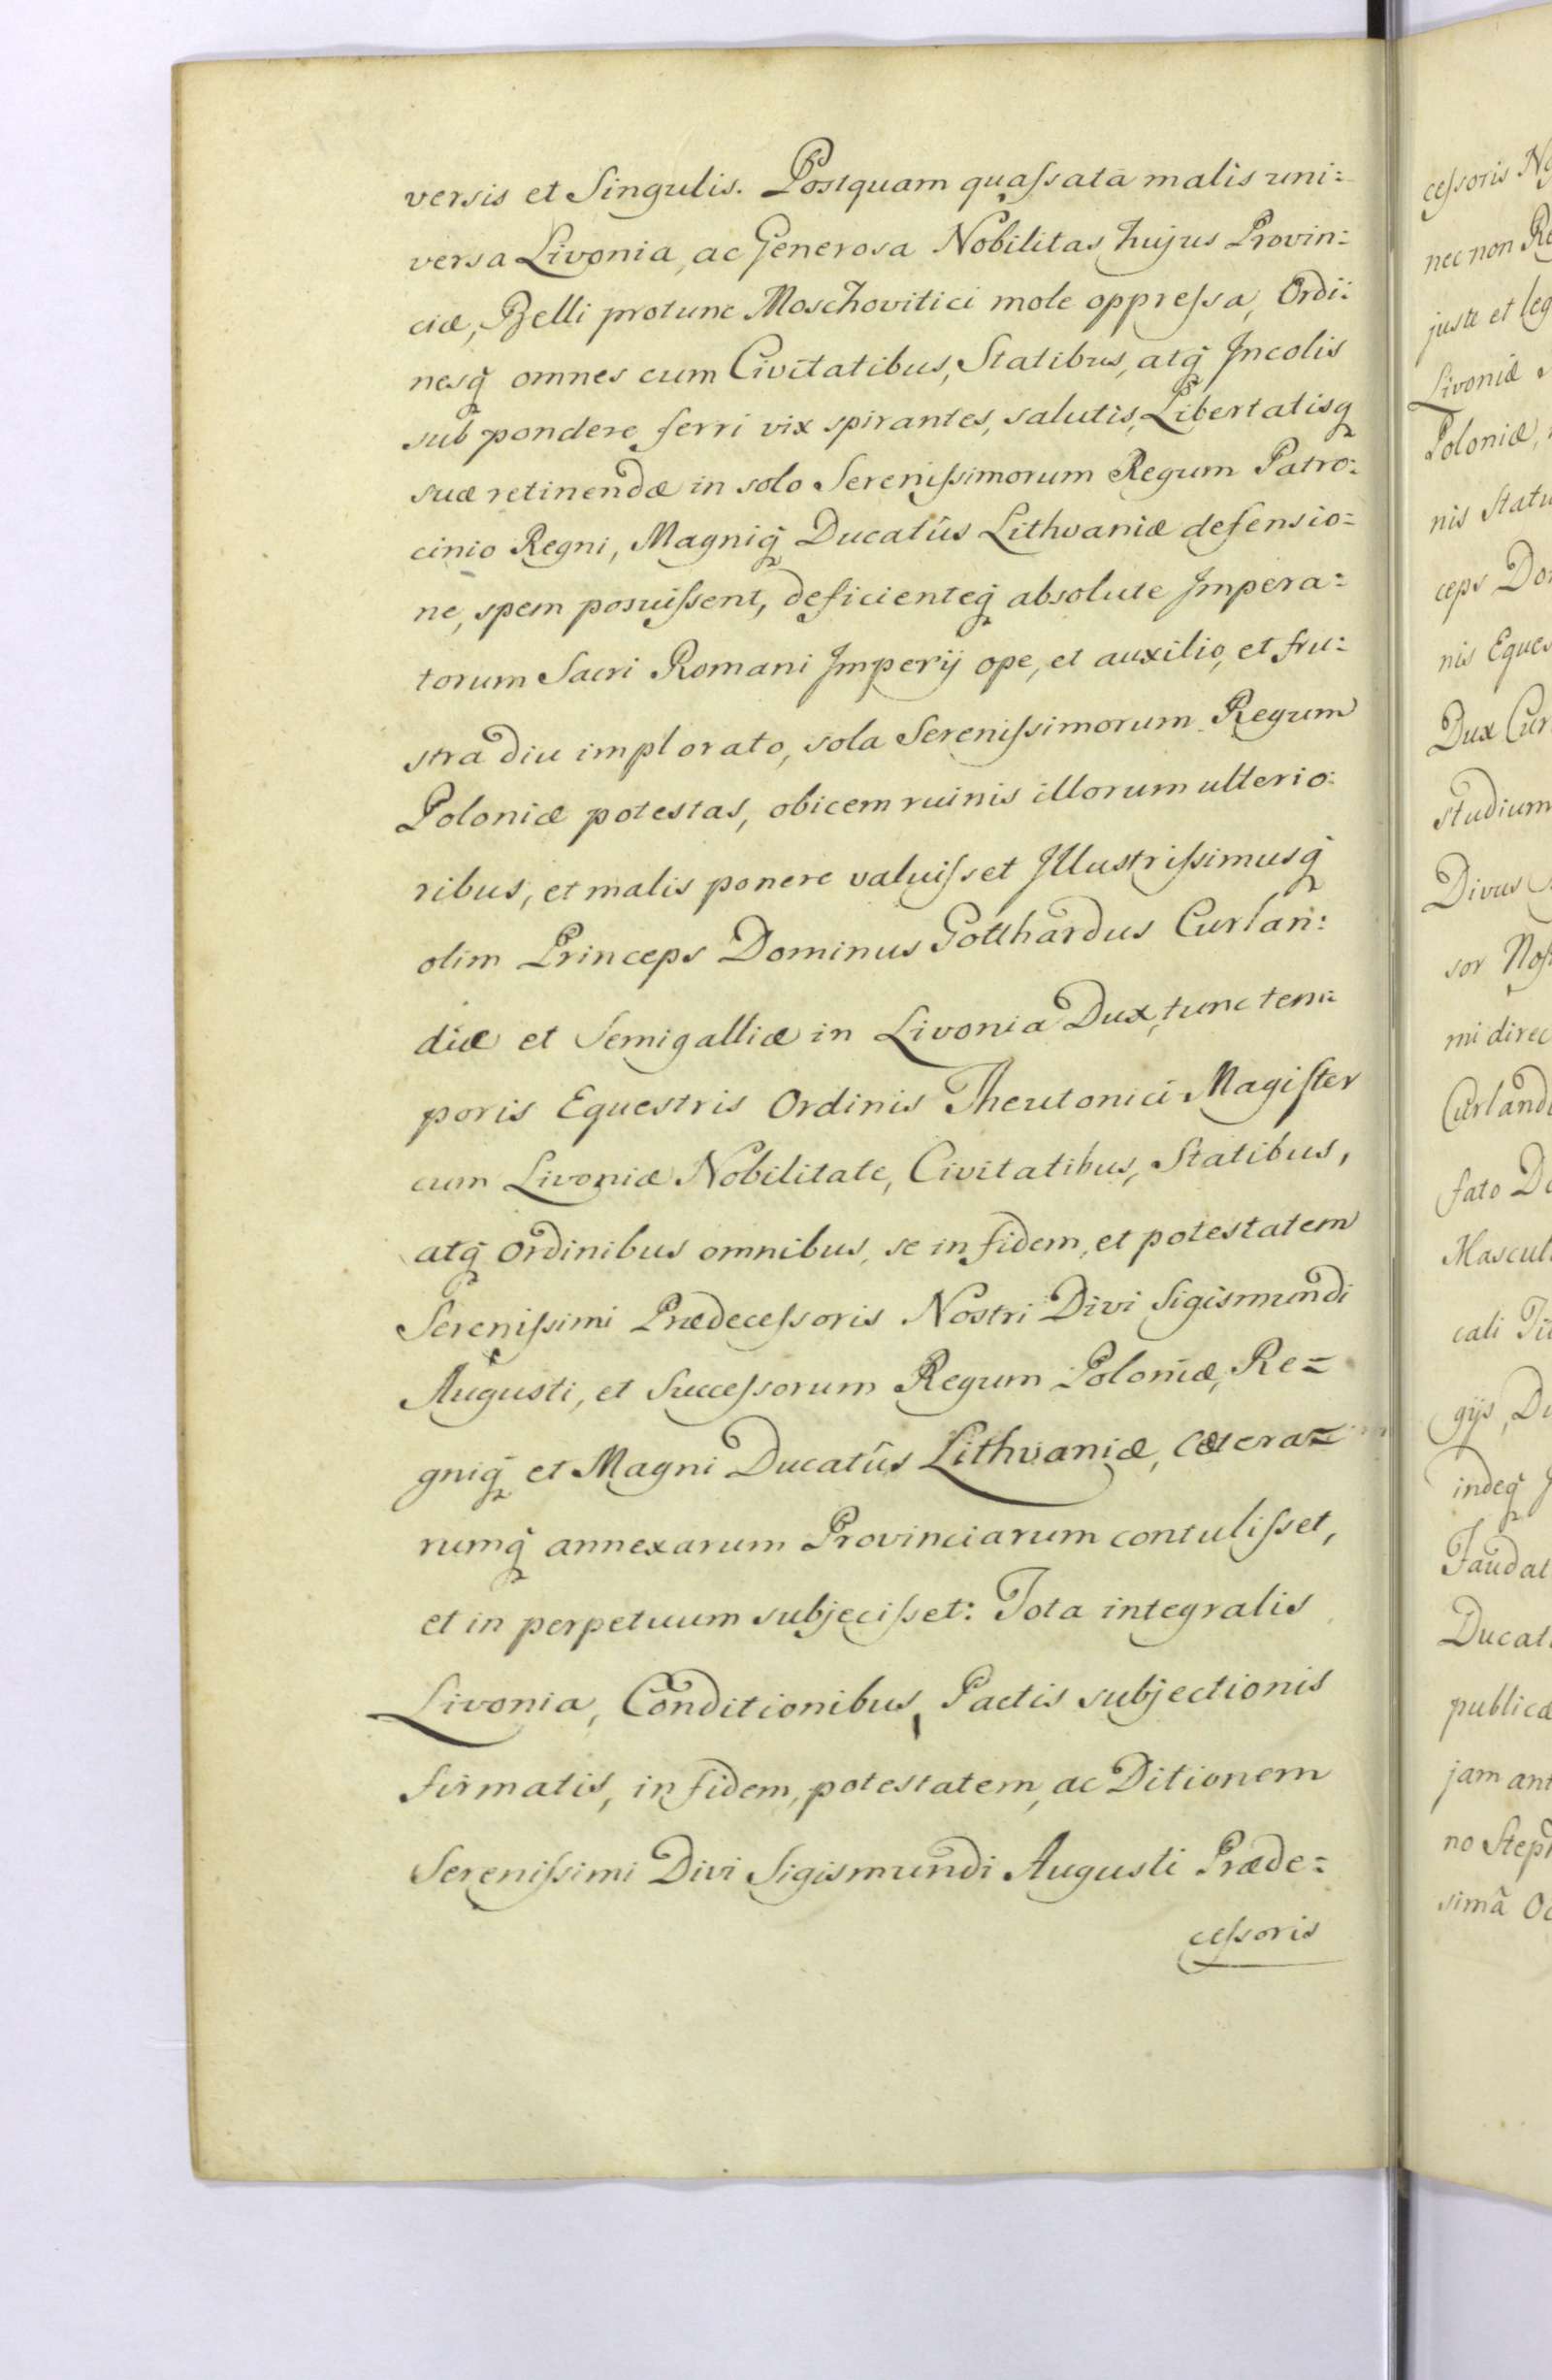 versis et Singulis. Postquam quaſsata malis uni=
versa Livonia, ac Generosa Nobilitas hujus Provin=
ciæ, Belli protunc Moschovitici mole oppreſsa, Ordi=
nesq̃ omnes cum Civitatibus, Statibus, atq̃ Incolis
sub pondere ferri vix spirantes, salutis, Libertatisq̃
suæ retinendæ in solo Sereniſsimorum Regum Patro=
cinio Regni, Magniq̃ Ducatûs Lithvaniæ defensio=
ne, spem posuiſsent, deficienteq̃ absolute Impera=
torum Sacri Romani Imperij ope, et auxilio, et fru=
stra diu implorato, sola Sereniſsimorum Regum
Poloniæ potestas, obicem ruinis illorum ulterio=
ribus, et malis ponere valuiſset Illustriſsimusq̃
olim Princeps Dominus Gotthardus Curlan=
diæ et Semigalliæ in Livonia Dux, tunc tem=
poris Equestris Ordinis Theutonici Magiſter
cum Livoniæ Nobilitate, Civitatibus, Statibus,
atq̃ Ordinibus omnibus, se in fidem, et potestatem
Sereniſsimi Prædeceſsoris Nostri Divi Sigismundi
Augusti, et Succeſsorum Regum Poloniæ, Re=
gniq̃ et Magni Ducatûs Lithvaniæ, cætera=
rumq̃ annexarum Provinciarum contuliſset,
et in perpetuum subjeciſset: Tota integralis
Livonia, Conditionibus, Pactis subjectionis
firmatis, in fidem, potestatem, ac Ditionem
Sereniſsimi Divi Sigismundi Augusti Præde=
ceſsoris
ceſsoris
nec non
juste et
Livoniæ
Poloniæ,
nis
ceps
nis
Dux
studium
Divus
sor
mi
fato
cali
gijs,
indeq̃
publicæ
jam
no
simã